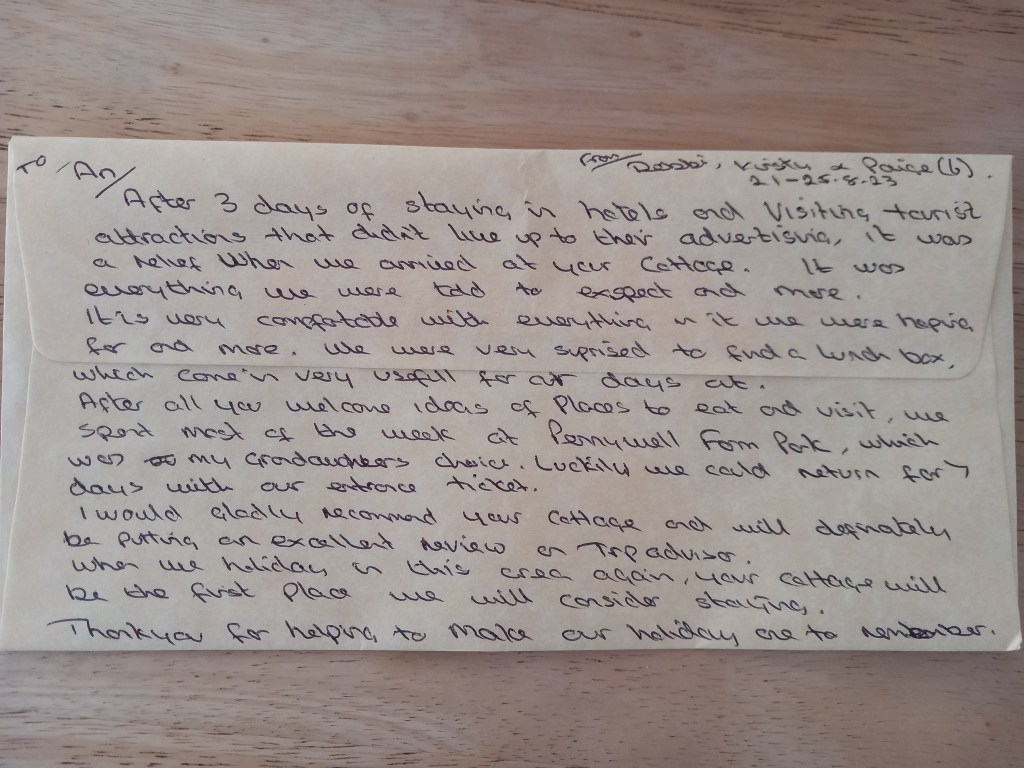 To/An/
From/ Debbi, Kirsty & Paige (6).
21-25.8.23
After 3 days of staying in hotels and visiting tourist
attractions that didn't live up to their advertising, it was
a relief when we arrived at your cottage. It was
everything we were told to expect and more.
It is very comfortable with everything in it we were hoping
for and more. We were very suprised to find a lunch box,
which come in very usefull for our days out.
After all you welcome ideas of places to eat and visit, we
spent most of the week at Pennywell Farm Park, which
was my Grandaughters choice. Luckily we could return for 7
days with our entrance ticket.
I would gladly recommend your cottage and will definately
be putting an excellent review on Tripadvisor.
When we holiday in this area again, your cottage will
be the first place we will consider staying.
Thankyou for helping to make our holiday one to remember.